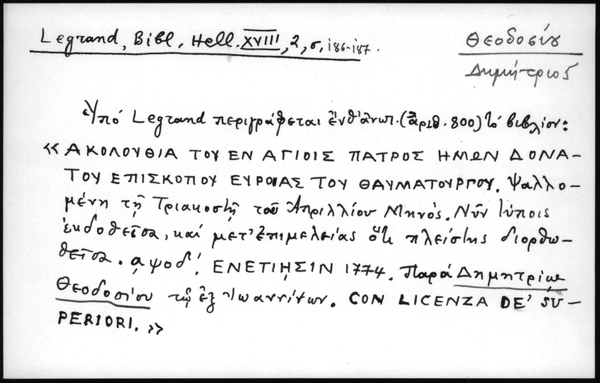 Legrand, Bibl. Hell. XVIII, 2, σ, 186-187.
Θεοδοσίου
Δημήτριος
Ὑπὸ Legrand περιγράφεται ἐνθ' ἀνωτ. (ἀριθ. 800) τὸ βιβλίον:
« ΑΚΟΛΟΥΘΙΑ ΤΟΥ ΕΝ ΑΓΙΟΙΣ ΠΑΤΡΟΣ ΗΜΩΝ ΔΟΝΑ-
ΤΟΥ ΕΠΙΣΚΟΠΟΥ ΕΥΡΟΙΑΣ ΤΟΥ ΘΑΥΜΑΤΟΥΡΓΟΥ. Ψαλλο-
μένη τῇ Τριακοστῇ τοῦ Ἀπριλλίου Μηνός. Νῦν τύποις
ἐκδοθεῖσα, καὶ μετ' ἐπιμελείας ὅτι πλείστης διορθω-
θεῖσα. αψοδ'. ΕΝΕΤΙΗΣΙΝ 1774. Παρὰ Δημητρίῳ
Θεοδοσίου τῷ ἐξ Ἰωαννίνων. CON LICENZA DE' SU-
PERIORI. »